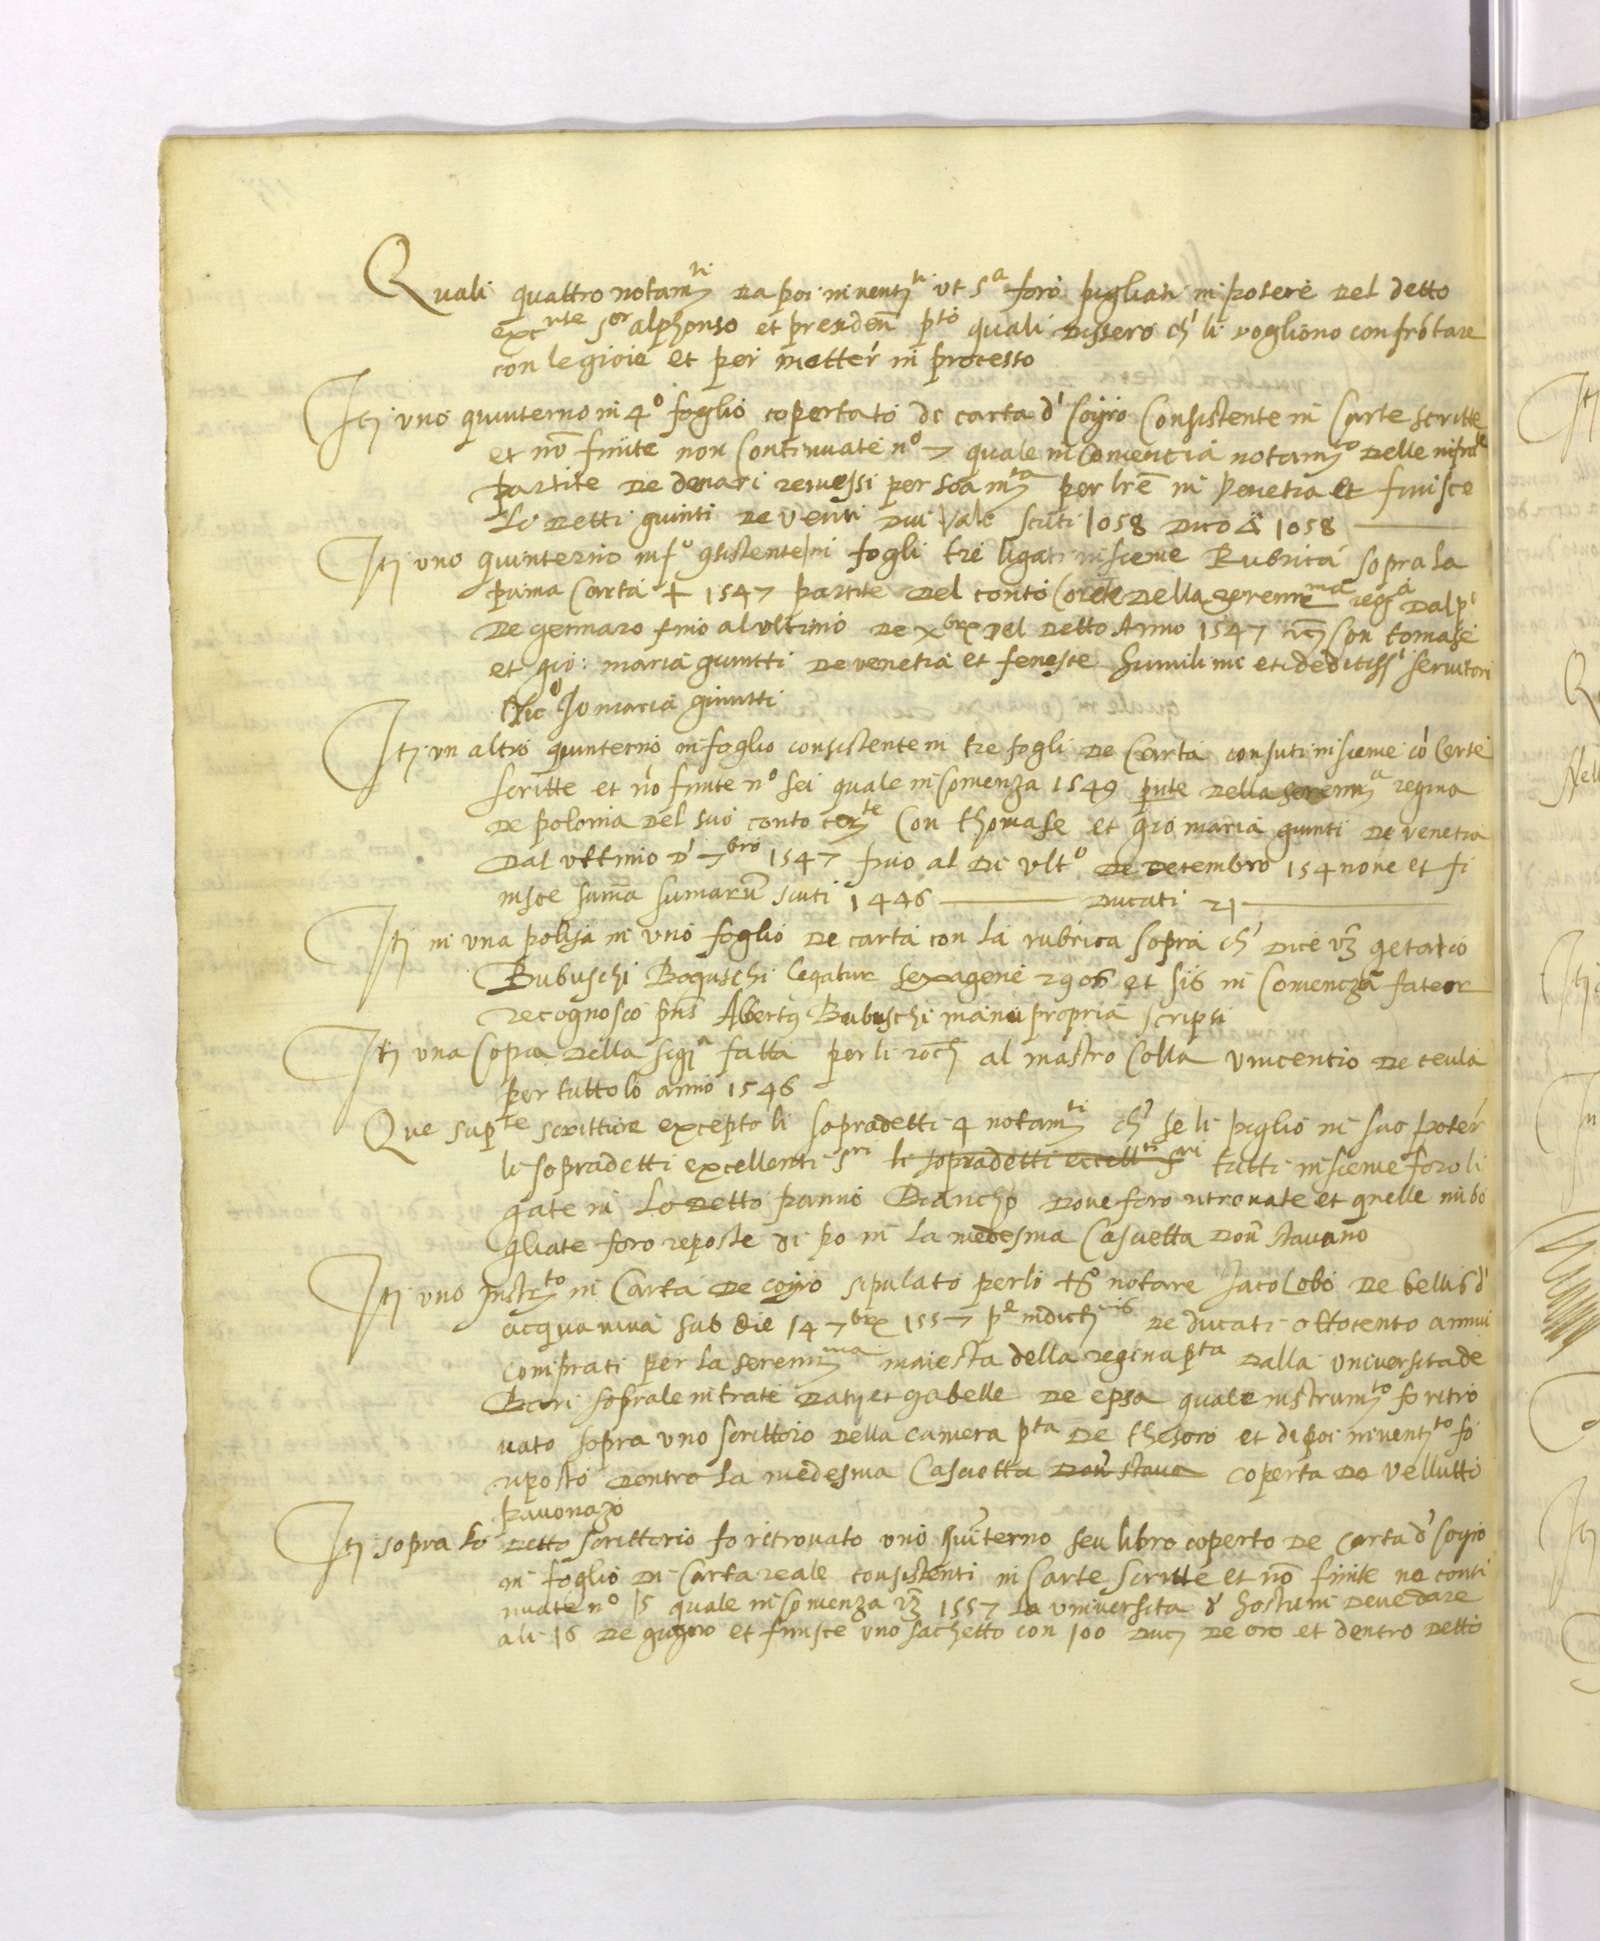 Quali quattro notam.ti da poi inventa.ti ut s.a foro pigliati in potere del detto
exc.nte s.or alphonso et prenden p.to quali dissero ch' li vogliono confrótare
con le gioie et per metter in processo
It uno quinterno in 4º foglio copertato de carta d' coyro Consistente in Carte scritte
et nō finite non Continuate nº 7 quale in Comencia notam.º delle infra.te
partite de denari remessi per soa m.ta per lrē in Venetia et finisce
Li detti guinti de venti dui Vale scuti 1058 dico Δ 1058
It uno quinterno in fº gsistente in fogli tre ligati insieme Rubrica sopra la
prima Carta + 1547 partite del conto Corete della seren.ma reg.a dal p'
de gennaro fino al ultimo de x.bre del detto Anno 1547 con tomase
et gio: maria guintti de venetia et feneste humilime et deditiss.i servitori
Jo maria giuntti
It un altro quinterno in foglio consistente in tre fogli de Carta consuti insieme có Certe
scritte et nó finite nº sei quale in Comenza 1549 pute della serenm.a regina
de polonia del suo conto cor.te Con thomase et gio maria guinti de venetia
dal ultimo d' 7.bro 1547 fino al di ult.º de decembro 154 none et fi
nisce suma sumarū scuti 1446 ducati 21
It in una polisa in uno foglio de carta con la rubrica sopra ch' dice vz
Bubuschi Boguschi legatur sexagene 2906 et sis in Comencza fateor
recognosco pns Albertg Bubuschi manu propria scripsi
It una Copia della fatta per li al mastro Colla vincentio de ceula
per tutto lo anno 1546
Que sup.te scritture excepto li sopradetti 4 notam.ti ch' se li piglio in suo poter
li sopradetti excellenti s.ri li sopradetti eccell.ti s.ri tutti insieme foro li
gate in Lo detto panno Biancho dove foro ritrovate et quelle inbo
gliate foro reposte di po in la medesma Cascietta don' stavano
It uno Instr.to in Carta de coyro stipulato per lo notare Jaco Lobo de bellis d'
acqua viva sub die 14 7.bre 1557 p.e indict.is de ducati ottocento annui
comprati per la seren.ma maiesta della regina p.ta dalla universita de
Bari sopra le intrate datii et gabelle de epsa quale instrum.to fo ritro
vato sopra uno scrittoio della camera p.ta de thesoro et di poi invent.to fo
riposto dentro La medesma Casciotta don' stava coperta de vellutto
pavonazo
It sopra lo detto scrittorio fo ritrovato uno quinterno seu libro coperto de carta d' Coyro
in foglio di Carta reale consistenti in Carte scritte et nō finite ne conti
nuate nº 15 quale in Comenza vz 1557 La universita d' hostuni deve dare
a li 16 de giugno et finisce uno sachetto con 100 duc de oro et dentro detto